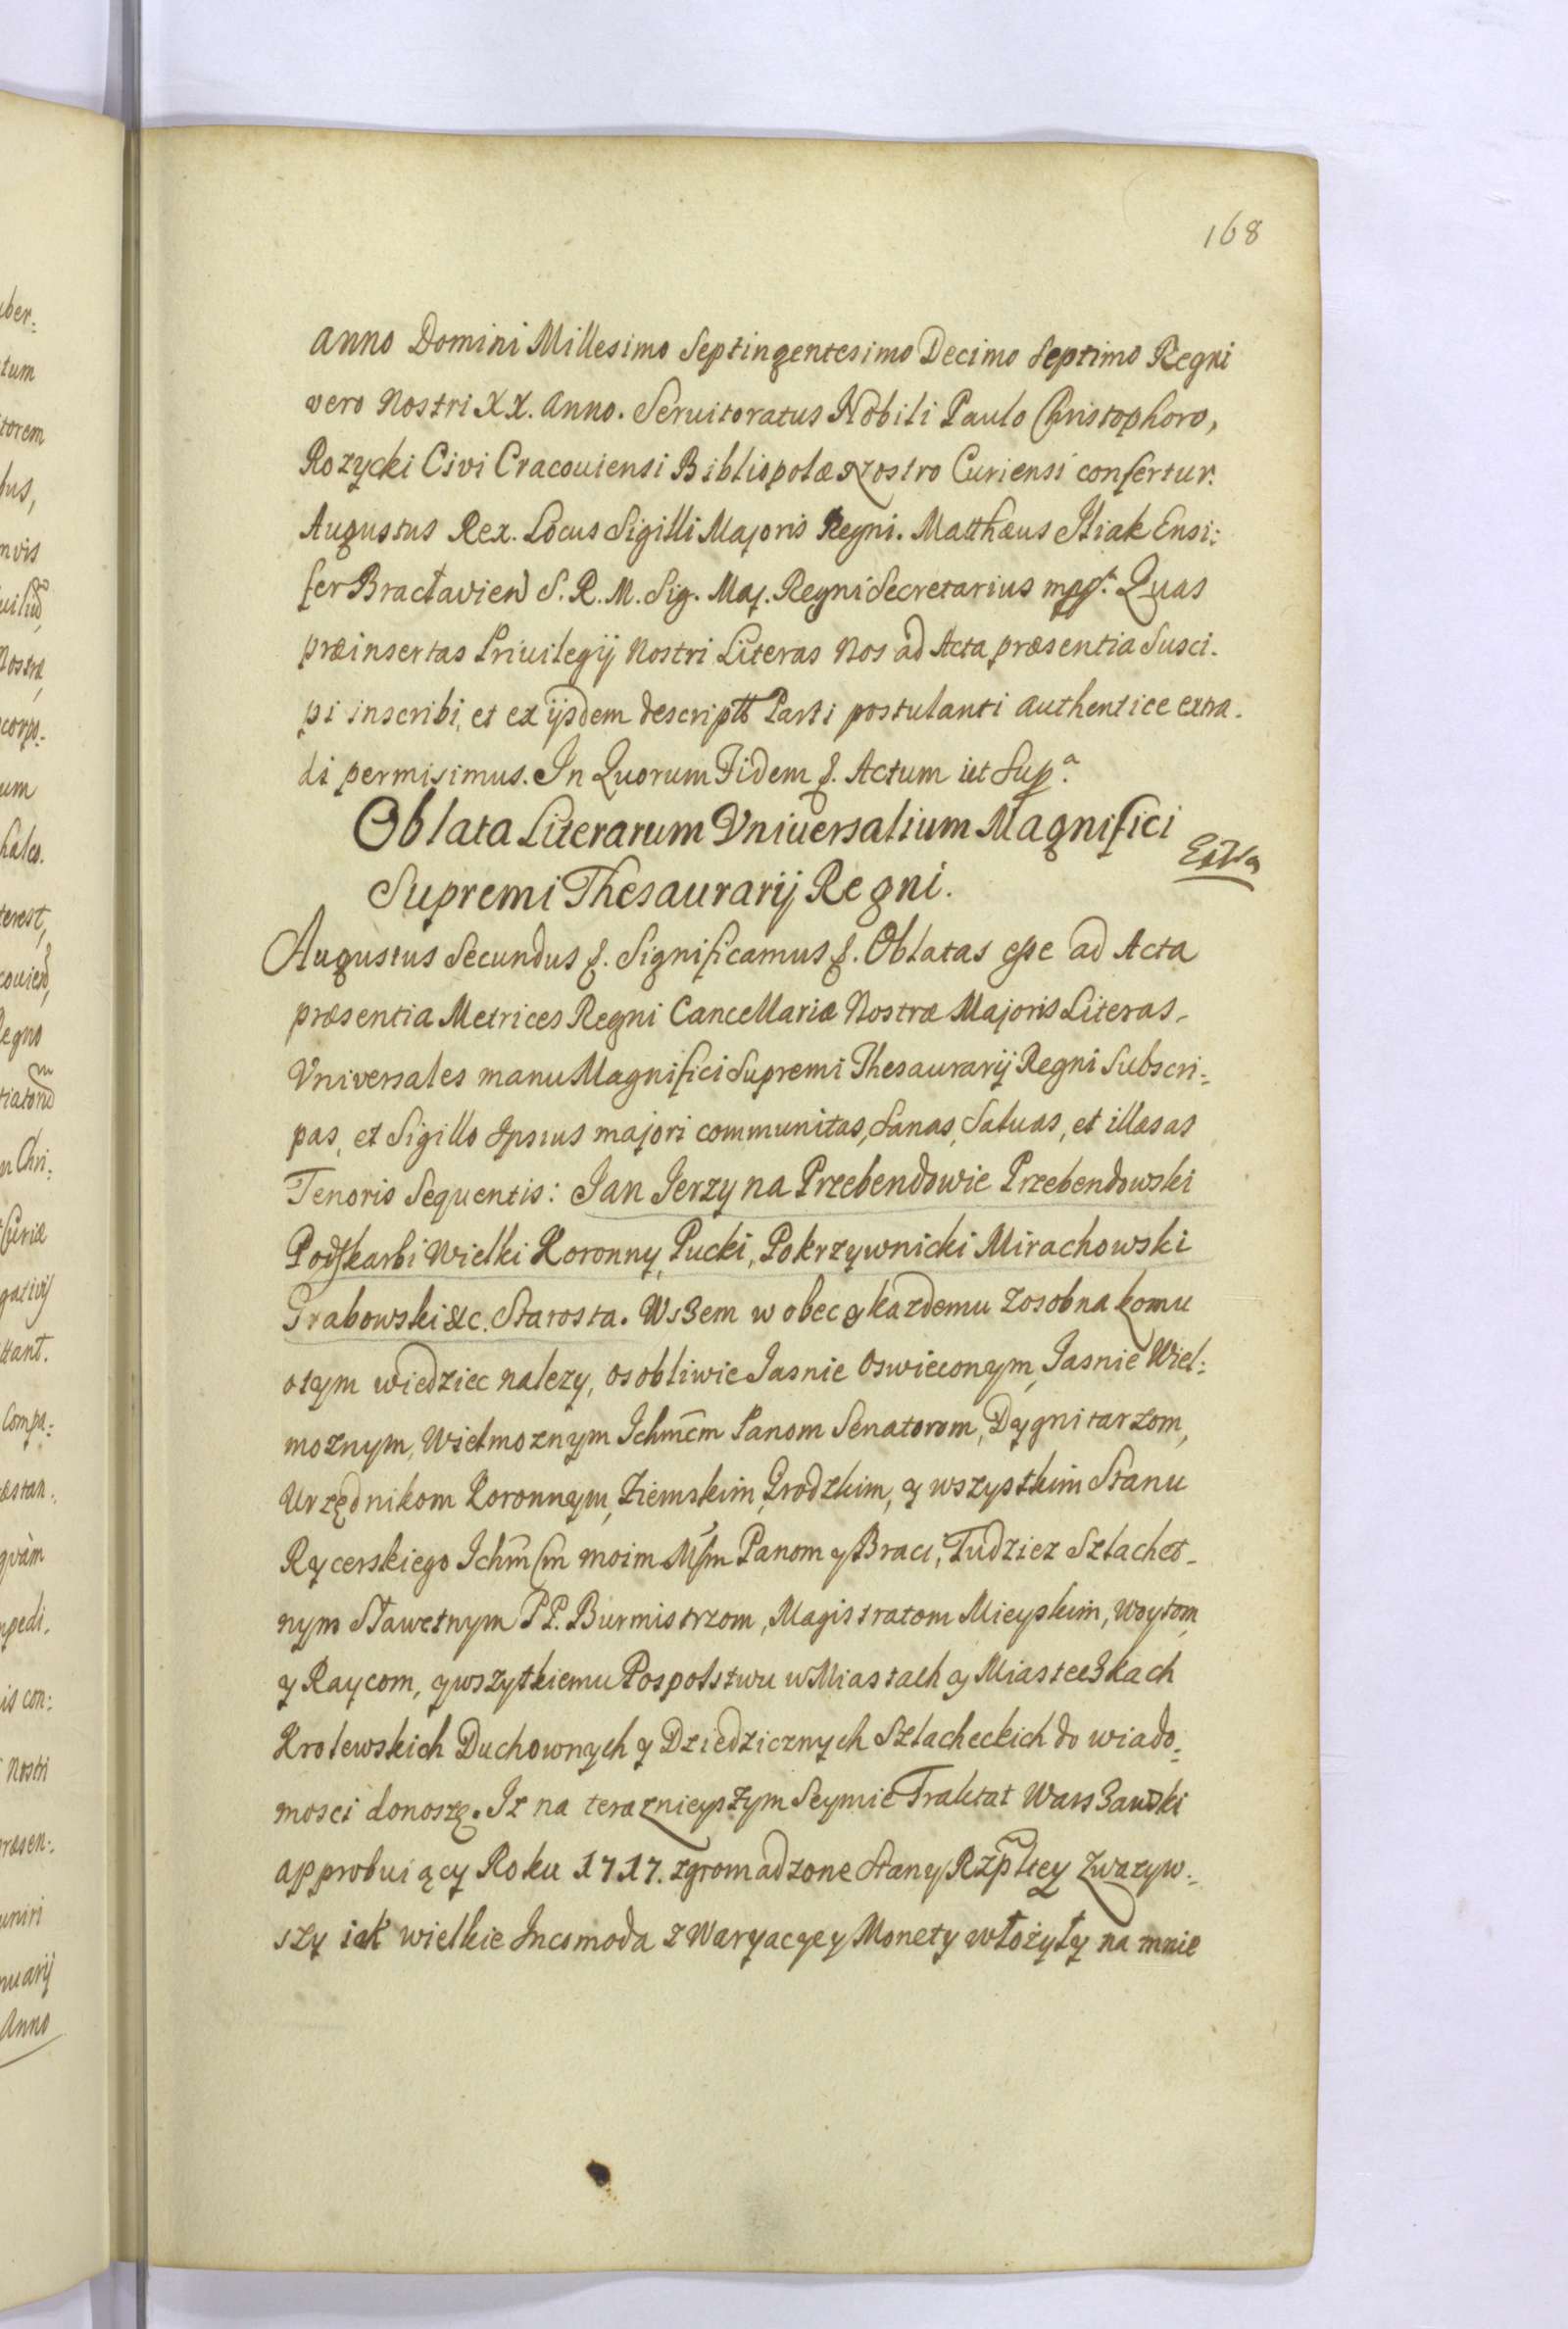 168
Anno Domini Millesimo Septingentesimo Decimo Septimo Regni
vero Nostri XX. Anno. Seruitoratus Nobili Paulo Christophoro,
Rozycki Civi Cracouiensi Bibliopolæ Nostro Curiensi confertur.
Augustus Rex. Locus Sigilli Majoris Regni. Matthæus Iliak Ensi:
fer Bractavien S. R. M. Sig. Maj. Regni Secretarius mpp. Quas
præinsertas Priuilegij Nostri Literas Nos ad Acta præsentia Susci-
pi inscribi, et ex ijsdem descriptt Parti postulanti authentice extra-
di permisimus. In Quorum Fidem &. Actum ut Sup.a
Oblata Literarum Vniuersalium Magnifici
Supremi Thesaurarij Regni.
Augustus Secundus &. Significamus &. Oblatas esse ad Acta
præsentia Metrices Regni Cancellariæ Nostræ Majoris Literas
Vniversales manu Magnifici Supremi Thesaurarij Regni Subscri:
pas, et Sigillo Ipsius majori communitas, Sanas, Saluas, et illæsas
Tenoris Sequentis: Jan Jerzy na Przebendowie Przebendowski
Podskarbi Wielki Koronny, Pucki, Pokrzywnicki Mirachowski
Grabowski &c. Starosta. Wszem w obec y kazdemu zosobna komu
otym wiedziec nalezy, osobliwie Jasnie Oswieconym, Jasnie Wiel:
moznym, Wielmoznym Ichmcm Panom Senatorom, Dygnitarzom,
Urzędnikom Koronnym, Ziemskim, Grodzkim, y wszystkim Stanu
Rycerskiego Ichm cm moim Mm Panom y Braci, Tudziez Szlachet-
nym Sławetnym PP. Burmistrzom, Magistratom Mieyskim, Woytom,
y Raycom, y wszytkiemu Pospolstwu w Miastach y Miasteczkach
Krolewskich Duchownych y Dziedzicznych Szlacheckich do wiado:
mosci donoszę. Iz na teraznieyszym Seymie Traktat Warszawski
approbuiący Roku 1717. zgromadzone Stany Rzpltey zwazyw:
szy iak wielkie Incomoda z Waryacyey Monety włożyły na mnie